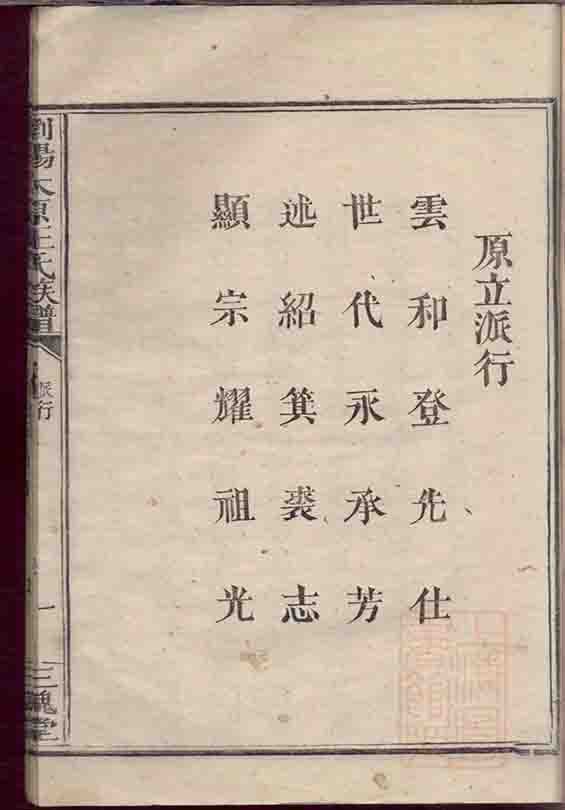 原立派行
雲和登先仕
世代永承芳
述紹箕裘志
顯宗耀祖光
劉陽太原王氏族譜
派行
一
三槐堂